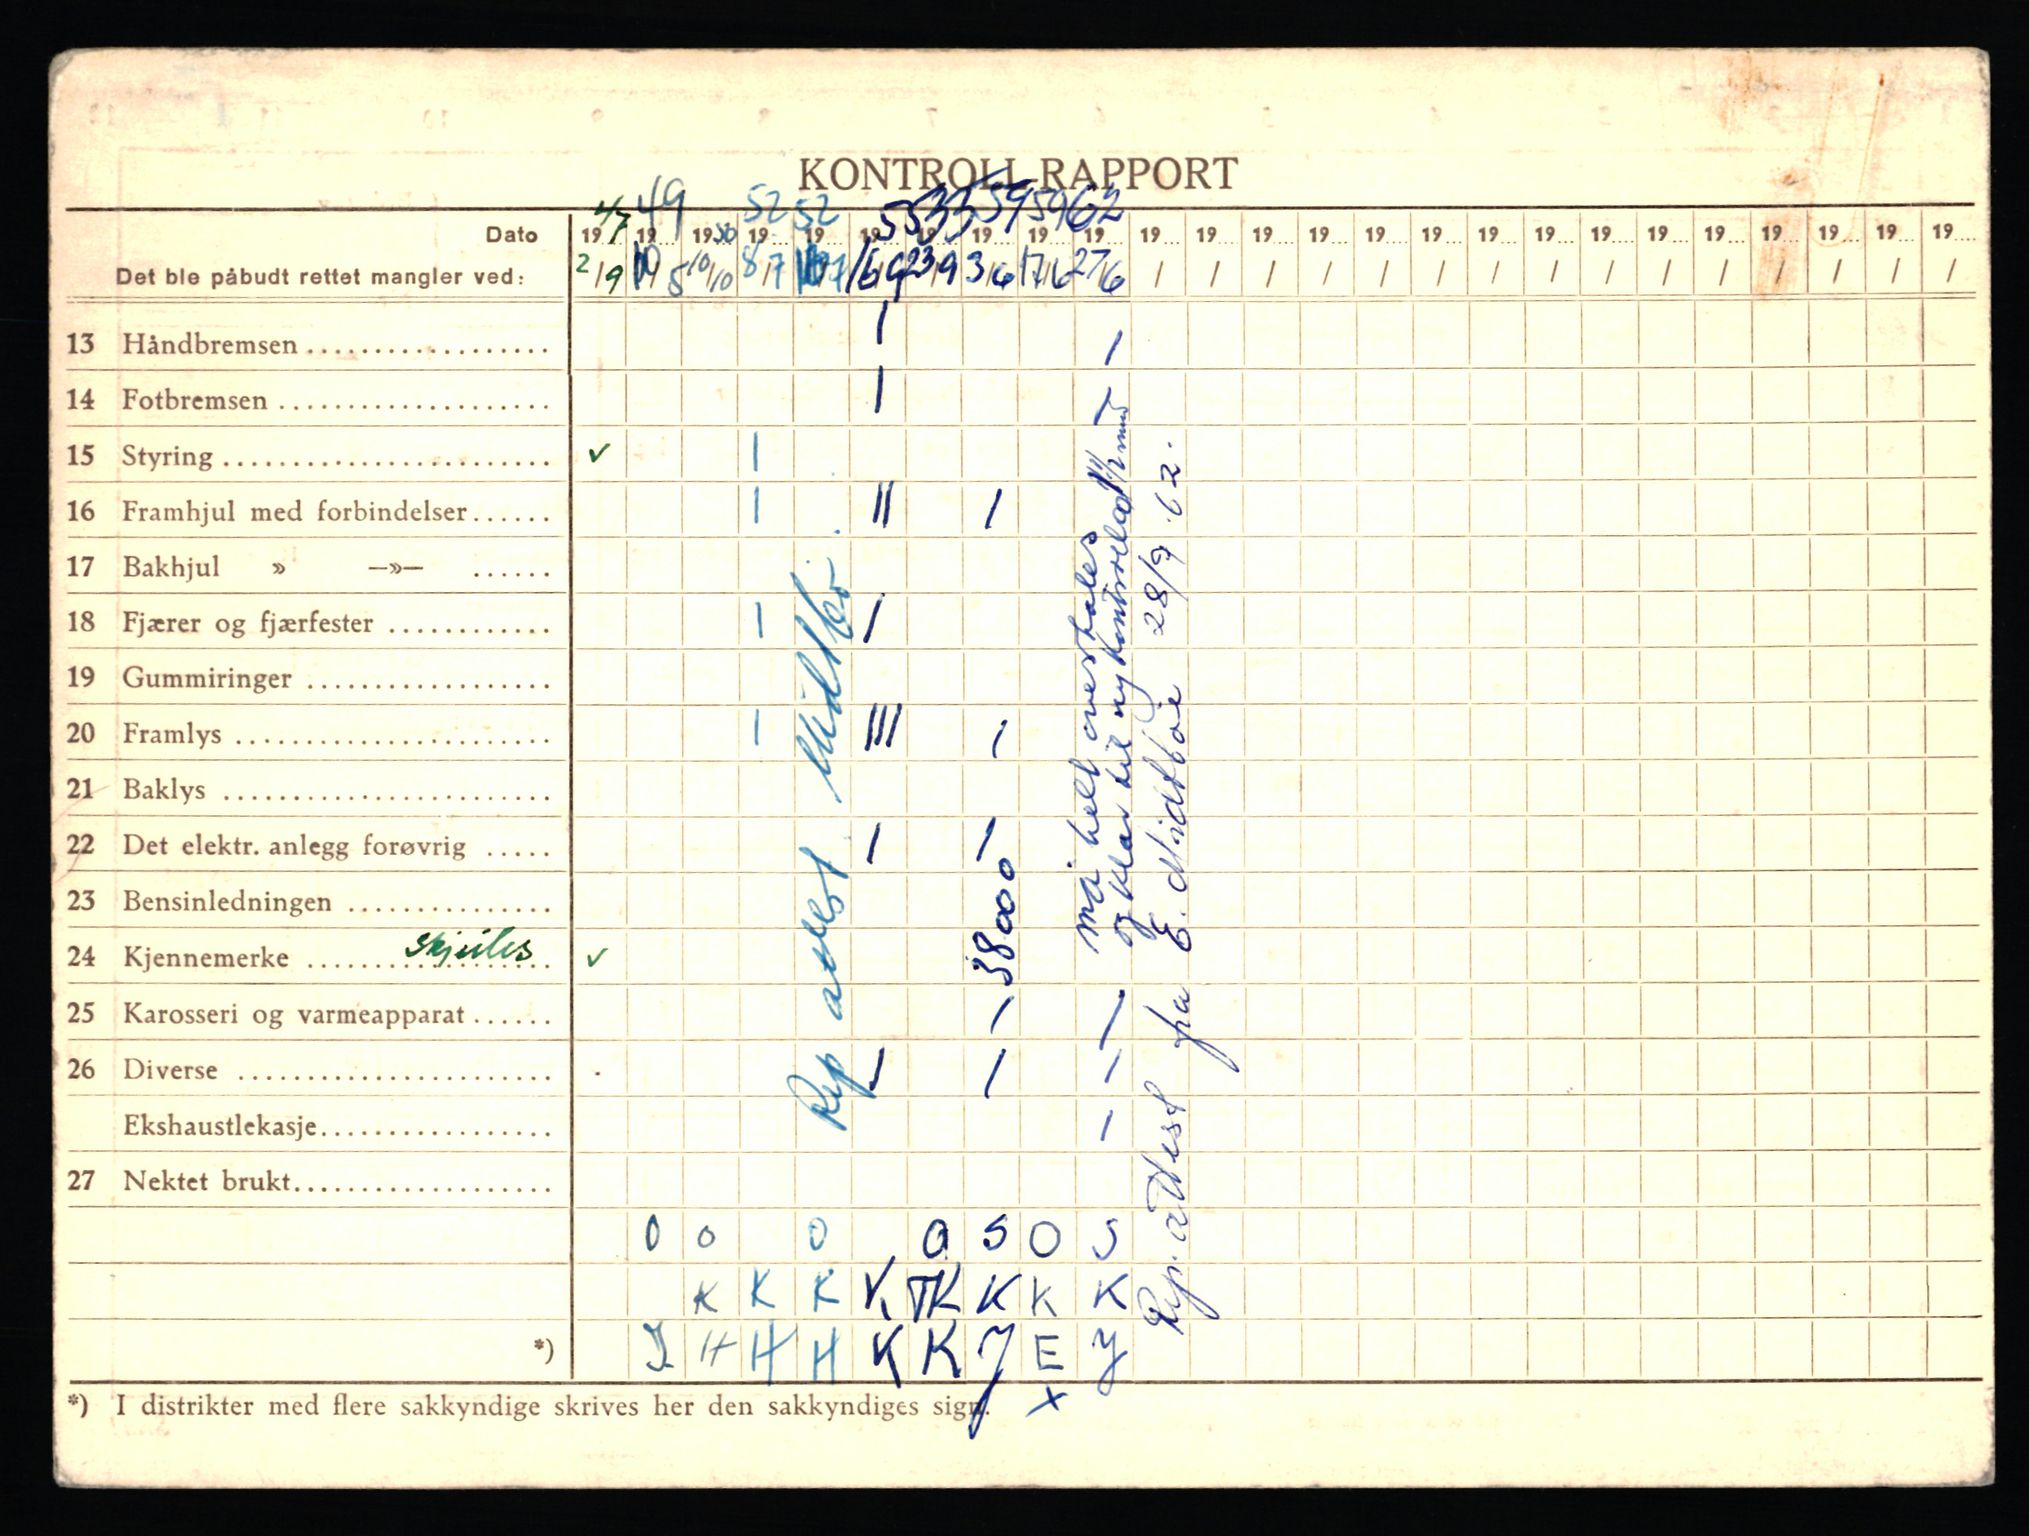 KONTROLL-RAPPORT
47 49 50 52 52 55 53 59 59 62
Dato 19 19 19 19 19 19 19 19 19 19 19 19 19 19 19 19 19 19 19 19 19 19 19 19 19
Det ble påbudt rettet mangler ved: 2/9 10/5 10/10 8/7 16/9 23/9 3/6 17/6 27/6 / / / / / / / / / / / / / / /
13 Håndbremsen
14 Fotbremsen
15 Styring
16 Framhjul med forbindelser
17 Bakhjul » —»—
18 Fjærer og fjærfester
19 Gummiringer
20 Framlys
21 Baklys
22 Det elektr. anlegg forøvrig
23 Bensinledningen
24 Kjennemerke skjules
25 Karosseri og varmeapparat
26 Diverse
Ekshaustlekasje
27 Nektet brukt
Rep attest Midtbø
38000
må helt overhales
og klar til ny kontroll
Rep. attest fra E. Midtbøe 28/9 62.
O O O O S O S
K K K K TK K K K
J H H H K K J E Y
*)
x
*) I distrikter med flere sakkyndige skrives her den sakkyndiges sign.